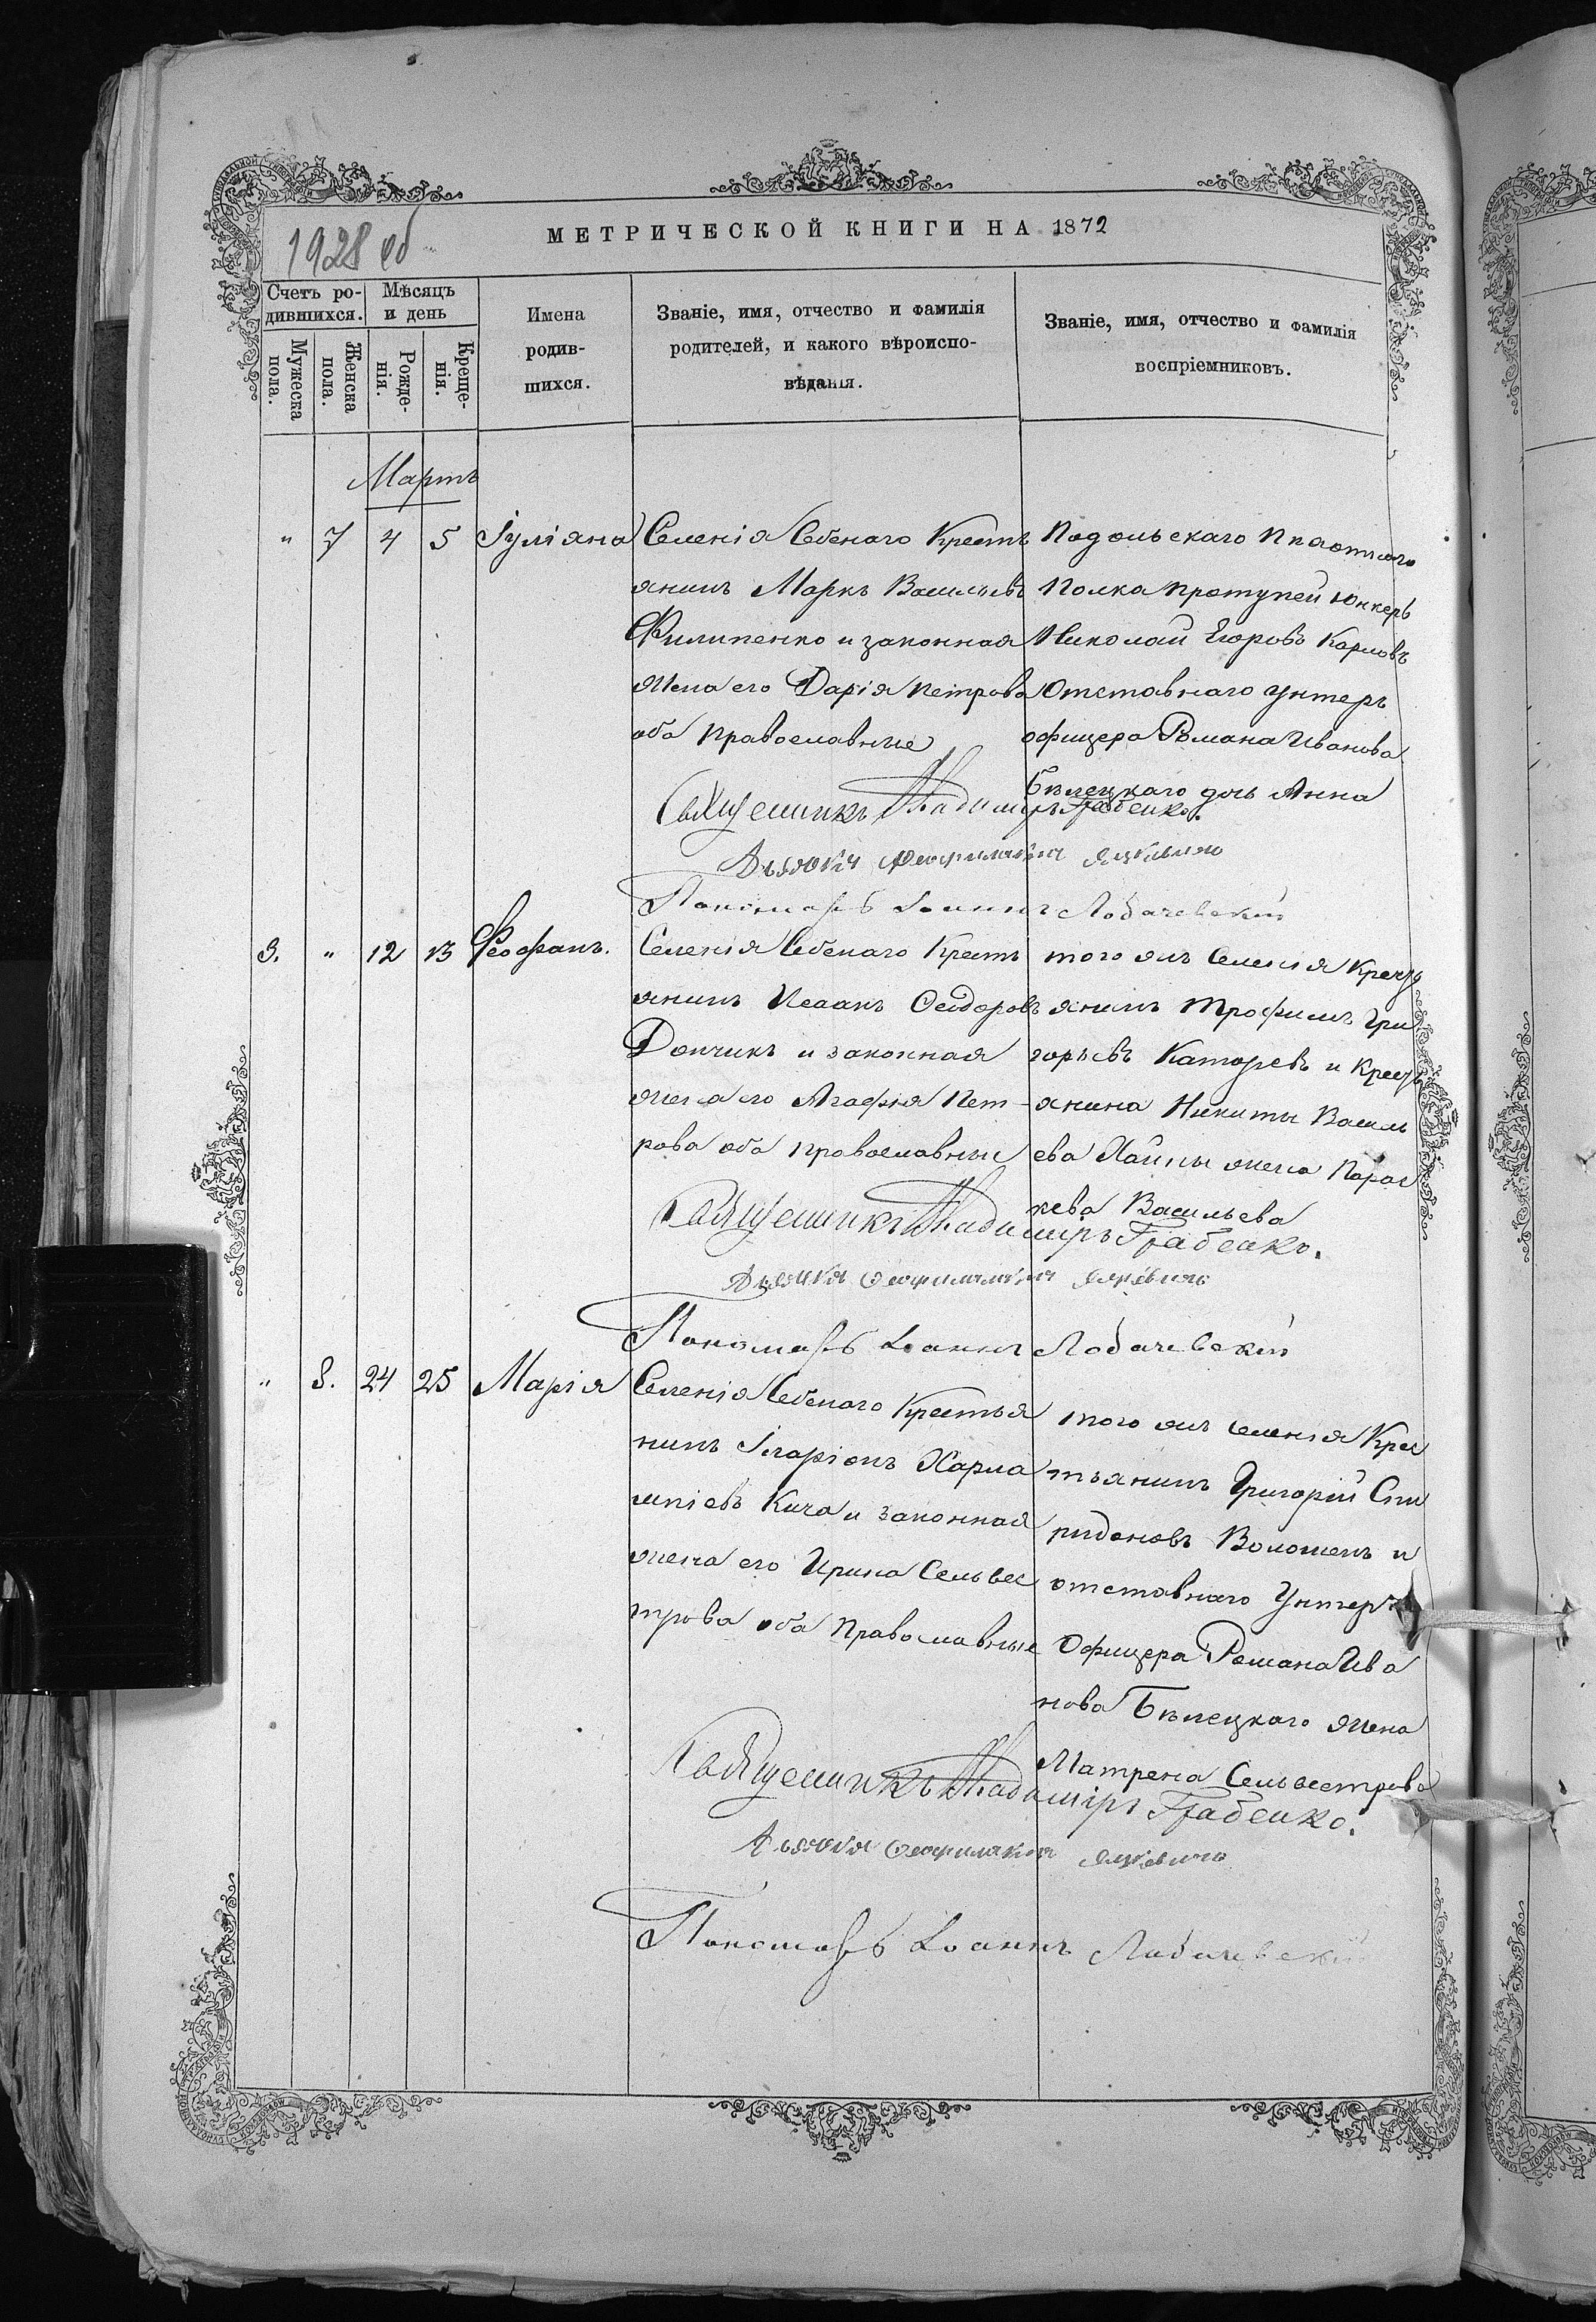 1928 об
МЕТРИЧЕСКОЙ КНИГИ НА 1872
Счетъ ро-
дившихся.
Мѣсяцъ
и день
Мужеска
пола.
Женска
пола.
Рожде-
нія.
Креще-
нія.
Имена
родив-
шихся.
Званіе, имя, отчество и фамилія
родителей, и какого вѣроиспо-
вѣданія.
Званіе, имя, отчество и фамилія
воспріемниковъ.
Мартъ
" 7 4 5 Іуліяна
Селенія Себенаго Кресть
янинъ Маркъ Васильевъ
Филипенко и законная
жена его Дарія Петрова
оба православные
Подольскаго
Полка Портупей Юнкеръ
Николай Егоровъ Карловъ
Отставнаго унтеръ
офицера Романа Иванова
Бѣлецкаго дочь Анна
Священникъ Владиміръ Грабенко.
Дьячокъ Феофилактъ Яцкевичъ
Пономарь Іоаннъ Лобачевскій
3. " 12 13 Феофанъ.
Селенія Себенаго Кресть
янинъ Исаакъ Сидоровъ
Дончикъ и законная
жена его Агафія Пет-
рова оба православные
того жъ Селенія Кресть
янинъ Трофимъ Гри
горьевъ и Кресть
янина Никиты Василь
ева жена Парас
кева Васильева
Священникъ Владиміръ Грабенко.
Дьячокъ Феофилактъ Яцкевичъ
Пономарь Іоаннъ Лобачевскій
" 8. 24 25 Марія
Селенія Себенаго Крестья
нинъ Іларіонъ Харла
мпіевъ Кича и законная
жена его Ирина Сельвес
трова оба Православные
того жъ селенія Крес
тьянинъ Григорій Спи
ридоновъ Волошенъ и
отставнаго Унтеръ
Офицера Романа Ива
нова Бѣлецкаго жена
Матрена Сельвестрова
Священникъ Владиміръ Грабенко.
Дьячокъ Феофилактъ Яцкевичъ
Пономарь Іоаннъ Лобачевскій